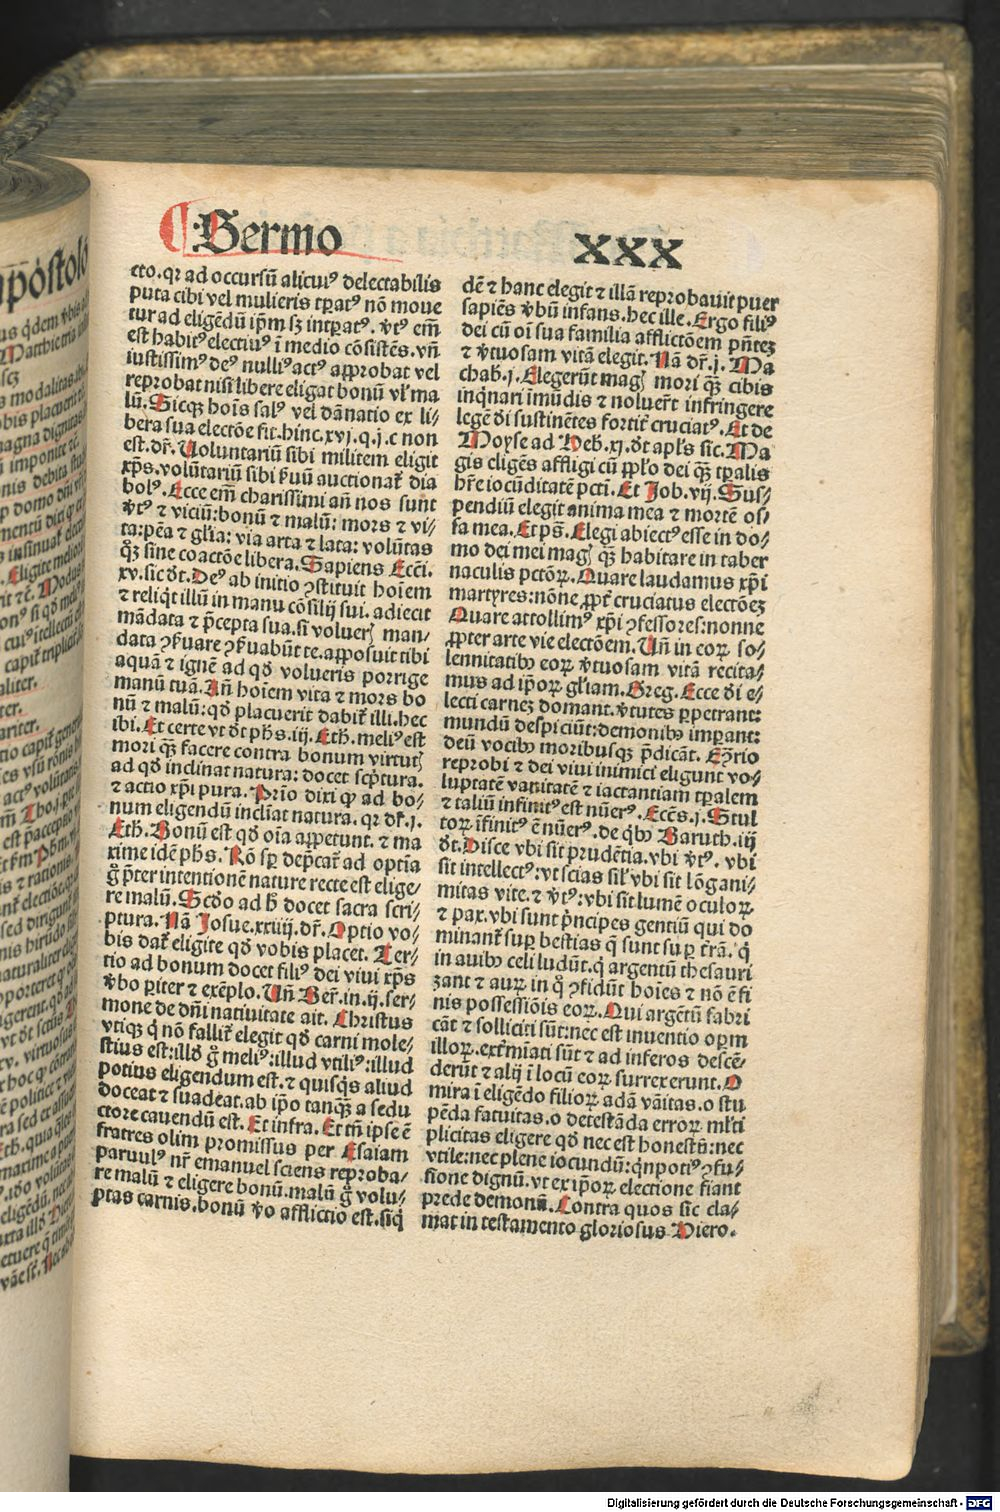 ¶ Sermo XXX
cto. qꝛ ad occursū alicuiꝰ delectabilis
puta cibi vel mulieris tꝑatꝰ nō moue
tur ad eligēdū ip̄m sꝫ intꝑatꝰ. v̓tꝰ em̄
est habitꝰ electiuꝰ ī medio cōsistēs. vn̄
iustissimꝰ deꝰ nulliꝰ actꝰ approbat vel
reprobat nisi libere eligat bonū vl̓ ma
lū. Sicqꝫ hoīs salꝰ vel dānatio ex li⸗
bera sua electōe fit. hinc. xvj. q. j. c non
est. dr̄. Voluntariū sibi militem eligit
xp̄s. volūtariū sibi ẜuū auctionat̓ dia
bolꝰ. Ecce em̄ charissimi añ nos sunt
v̓tꝰ ⁊ viciū: bonū ⁊ malū: mors ⁊ vi⸗
ta: pēa ⁊ gl̓ia: via arta ⁊ lata: volūtas
qꝫ sine coactōe libera. Sapiens Ecc̄i.
xv. sic d̓t. Deꝰ ab initio ꝯstituit hoīem
⁊ reliq̇t illū in manu cōsilij sui. adiecit
mādata ⁊ p̄cepta sua. si volueris man⸗
data ꝯẜuare ꝯẜuabūt te. apposuit tibi
aquā ⁊ ignē ad qd̓ volueris porrige
manū tuā. An̄ hoīem vita ⁊ mors bo
nū ⁊ malū: qd̓ placuerit dabit̓ illi. hec
ibi. Et certe vt d̓t ph̄s. iij. Eth̓. meliꝰ est
mori qꝫ̄ facere contra bonum virtutꝭ
ad qd̓ inclinat natura: docet scp̄tura.
⁊ actio xp̄i pura. Prīo dixi ꝙ ad bo⸗
num eligendū inclīat natura. qꝛ dr̄. j.
Eth̓. Bonū est qd̓ oīa appetunt. ⁊ ma
xime idē ph̄s. Rō sꝑ dep̄cat̓ ad optīa
g̊ p̄ter intentionē nature recte est elige⸗
re malū. Scd̓o ad h̓ docet sacra scri⸗
ptura. Nā Josue. xxiiij. dr̄. Optio vo⸗
bis dat̓ eligite qd̓ vobis placet. Ter⸗
tio ad bonum docet filiꝰ dei viui xp̄s
v̓bo ꝑiter ⁊ exēplo. Vn̄ Ber̄. in. ij. ser⸗
mone de dn̄i natiuitate ait. Christus
vtiqꝫ q̇ nō fallit̓ elegit qd̓ carni mole⸗
stius est: illd̓ g̊ meliꝰ: illud vtiliꝰ: illud
potius eligendum est. ⁊ quisq̇s aliud
doceat ⁊ suadeat. ab ip̄o tanqꝫ̄ a sedu
ctore cauendū est. Et infra. Et tn̄ ipse ē
fratres olim promissus per Esaiam
paruulꝰ nr̄ emanuel sciens reproba⸗
re malū ⁊ eligere bonū. malū g̊ volu⸗
ptas carnis. bonū v̓o afflictio est. siq̇
dē ⁊ hanc elegit ⁊ illā reprobauit puer
sapiēs v̓bū infans. hec ille. Ergo filiꝰ
dei cū oī sua familia afflictōem pn̄teꝫ
⁊ v̓tuosam vitā elegit. Nā dr̄. j. Ma
chab̓. j. Elegerūt magꝭ mori qꝫ̄ cibis
inq̇nari īmūdis ⁊ noluer̄t infringere
legē d̓i sustinētes fortit̓ cruciatꝰ. Et de
Moyse ad Heb̓. xj. d̓t apl̓s sic. Ma
gis eligēs affligi cū pplo dei qꝫ̄ tꝑalis
hr̄e iocūditatē pctī. Et Job. vij. Sus⸗
pendiū elegit anima mea ⁊ mortē os⸗
sa mea. Et ps̄. Elegi abiectꝰ esse in do⸗
mo dei mei magꝭ qꝫ̄ habitare in taber
naculis pctōꝝ. Quare laudamus xp̄i
martyres: nōne ꝓpt̓ cruciatus electōeꝫ
Quare attollimꝰ xp̄i ꝯfessores: nonne
ꝓpter arte vie electōem. Vn̄ in eoꝝ so⸗
lennitatibꝰ eoꝝ v̓tuosam vitā recita⸗
mus ad ip̄oꝝ gl̓iam. Greg. Ecce d̓i e⸗
lecti carneꝫ domant. v̓tutes ꝑpetrant:
mundū despiciūt: demonibꝰ imꝑant:
deū vocibꝰ moribusqꝫ p̄dicāt. E9̄rio
reprobi ⁊ dei viui inimici eligunt vo⸗
luptatē vanitatē ⁊ iactantiam tꝑalem
⁊ taliū infinitꝰ est nūerꝰ. Ecc̄s. j. Stul
toꝝ īfinitꝰ ē nūerꝰ. de q̇bꝰ Baruth. iij
d̓t. Disce vbi sit prudētia. vbi v̓tꝰ. vbi
sit intellectꝰ: vt scias sil̓ vbi sit lōgani⸗
mitas vite. ⁊ v̓tꝰ: vbi sit lumē oculoꝝ
⁊ pax. vbi sunt p̄ncipes gentiū qui do
minant̓ suꝑ bestias q̄ sunt suꝑ t̓rā. q̇
in auibꝰ celi ludūt. q̇ argentū thesauri
zant ⁊ auꝝ in q̊ ꝯfidūt hoīes ⁊ nō ē fi
nis possessiōis eoꝝ. Qui argētū fabri
cāt ⁊ solliciti sūt: nec est inuentio opꝝ
illoꝝ. ext̓mīati sūt ⁊ ad inferos descē⸗
derūt ⁊ alij ī locū eoꝝ surrexerunt. O
mira ī eligēdo filioꝝ adā vāitas. o stu
pēda fatuitas. o detestāda erroꝝ ml̓ti
plicitas eligere qd̓ nec est honestū: nec
vtile: nec plene iocundū: q̇npotiꝰ ꝯfu⸗
sione dignū. vt ex ip̄oꝝ electione fiant
prede demonū. Contra quos sic cla⸗
mat in testamento gloriosus Hiero.
Digitalisierung gefördert durch die Deutsche Forschungsgemeinschaft - DFG